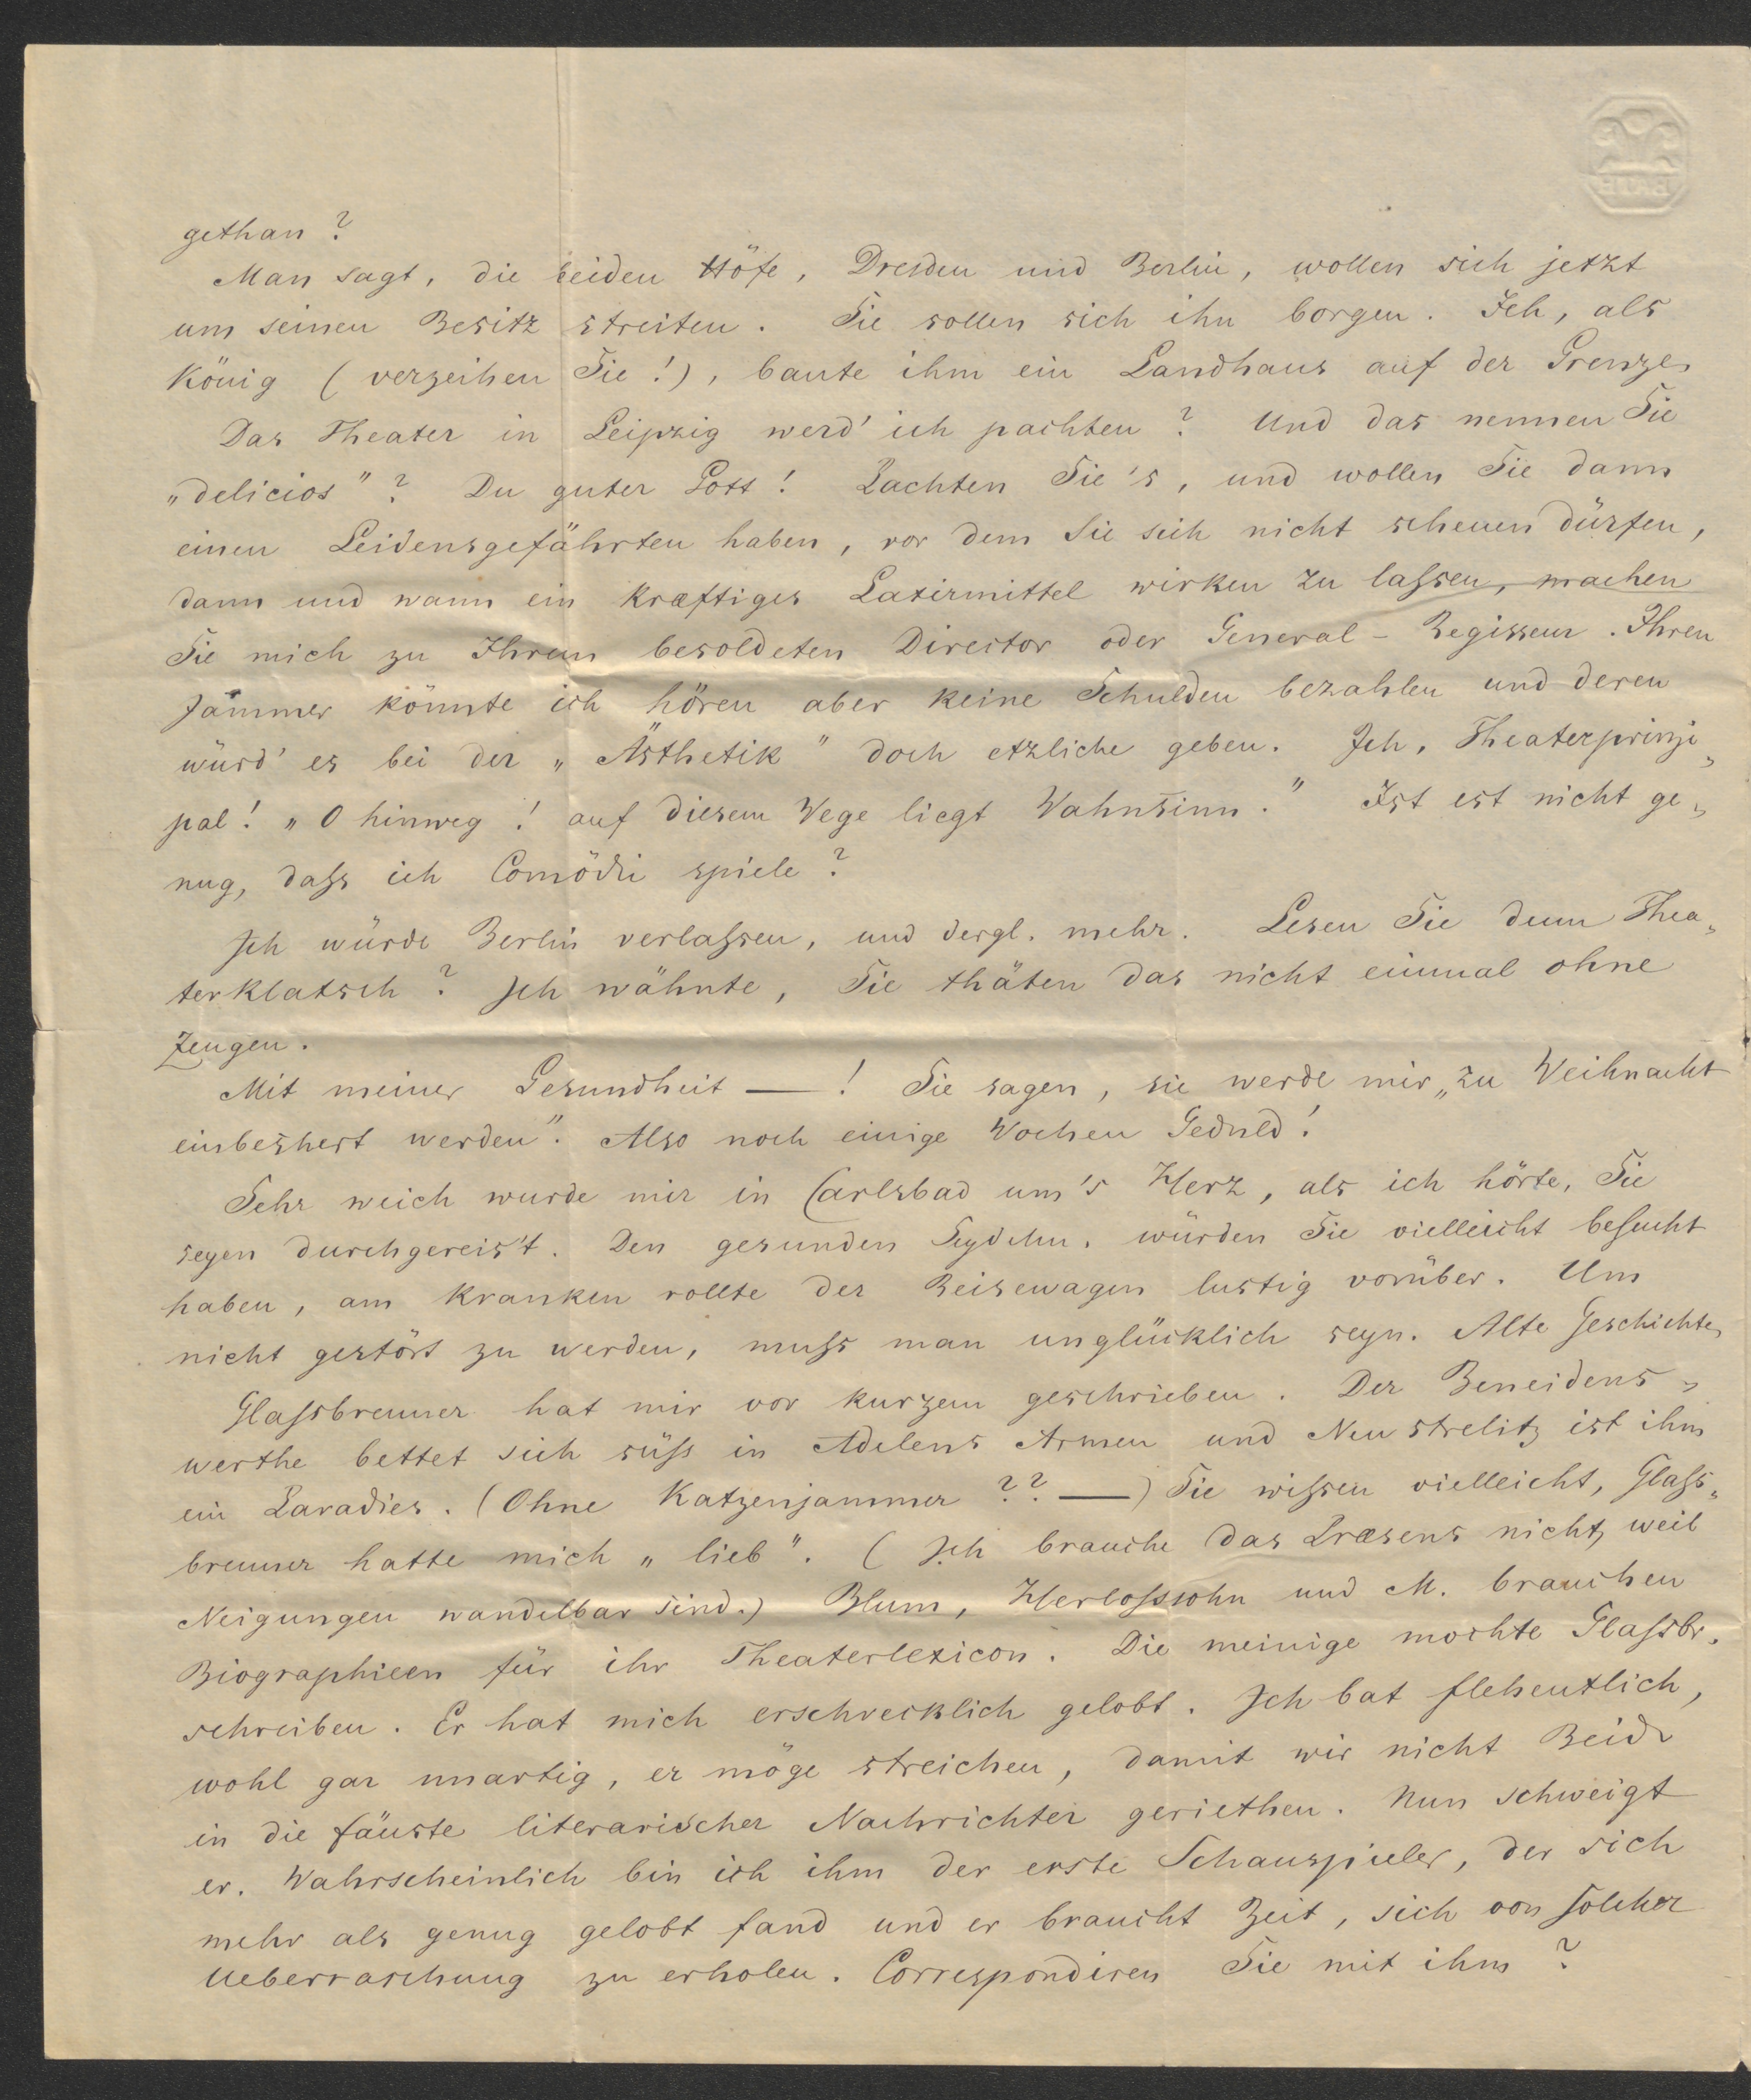 gethan?
Man sagt, die beiden Höfe, Dresden und Berlin, wollen sich jetzt
um seinen Besitz streiten. Sie sollen sich ihn borgen. Ich, als
König (verzeihen Sie!), baute ihm ein Landhaus auf der Grenze.
Das Theater in Leipzig werd' ich pachten? Und das nennen Sie
„delicios"? Du guter Gott! Pachten Sie's, und wollen Sie dann
einen Leidensgefährten haben, vor dem Sie sich nicht scheuen dürfen,
dann und wann ein kræftiges Laxirmittel wirken zu laſsen, machen
Sie mich zu Ihrem besoldeten Director oder General-Regisseur. Ihren
Jammer könnte ich hören aber keine Schulden bezahlen und deren
würd' es bei der „Ästhetik" doch etzliche geben. Ich, Theaterprinzi„
pal! „O hinweg! auf diesem Wege liegt Wahnsinn." Ist est nicht ge„
nug, daſs ich Comödie spiele?
Ich würde Berlin verlaſsen, und dergl. mehr. Lesen Sie denn Thea„
terklatsch? Ich wähnte, Sie thäten das nicht einmal ohne
Zeugen.
Mit meiner Gesundheit —! Sie sagen, sie werde mir „zu Weihnacht
einbeshert werden". Also noch einige Wochen Geduld!
Sehr weich wurde mir in Carlsbad um's Herz, als ich hörte, Sie
seyen durchgereis't. Den gesunden Seydelm. würden Sie vielleicht beſucht
haben, am Kranken rollte der Reisewagen lustig vorüber. Um
nicht gestört zu werden, muſs man unglücklich seyn. Alte Geschichte.
Glaſsbrenner hat mir vor kurzem geschrieben. Der Beneidens„
werthe bettet sich süſs in Adelens Armen und Neustrelitz ist ihm
ein Paradies. (Ohne Katzenjammer?? —) Sie wiſsen vielleicht, Glaſs„
brenner hatte mich „lieb". (Ich brauche das Præsens nicht, weil
Neigungen wandelbar sind.) Blum, Herloſssohn und M. brauchen
Biographieen für ihr Theaterlexicon. Die meinige mochte Glaſsbr.
schreiben. Er hat mich erschrecklich gelobt. Ich bat flehentlich,
wohl gar unartig, er möge streichen, damit wir nicht Beide
in die fäuste literarischer Nachrichter geriethen. Nun schweigt
er. Wahrscheinlich bin ich ihm der erste Schauspieler, der sich
mehr als genug gelobt fand und er braucht Zeit, sich von ſolcher
Ueberraschung zu erholen. Correspondiren Sie mit ihm?